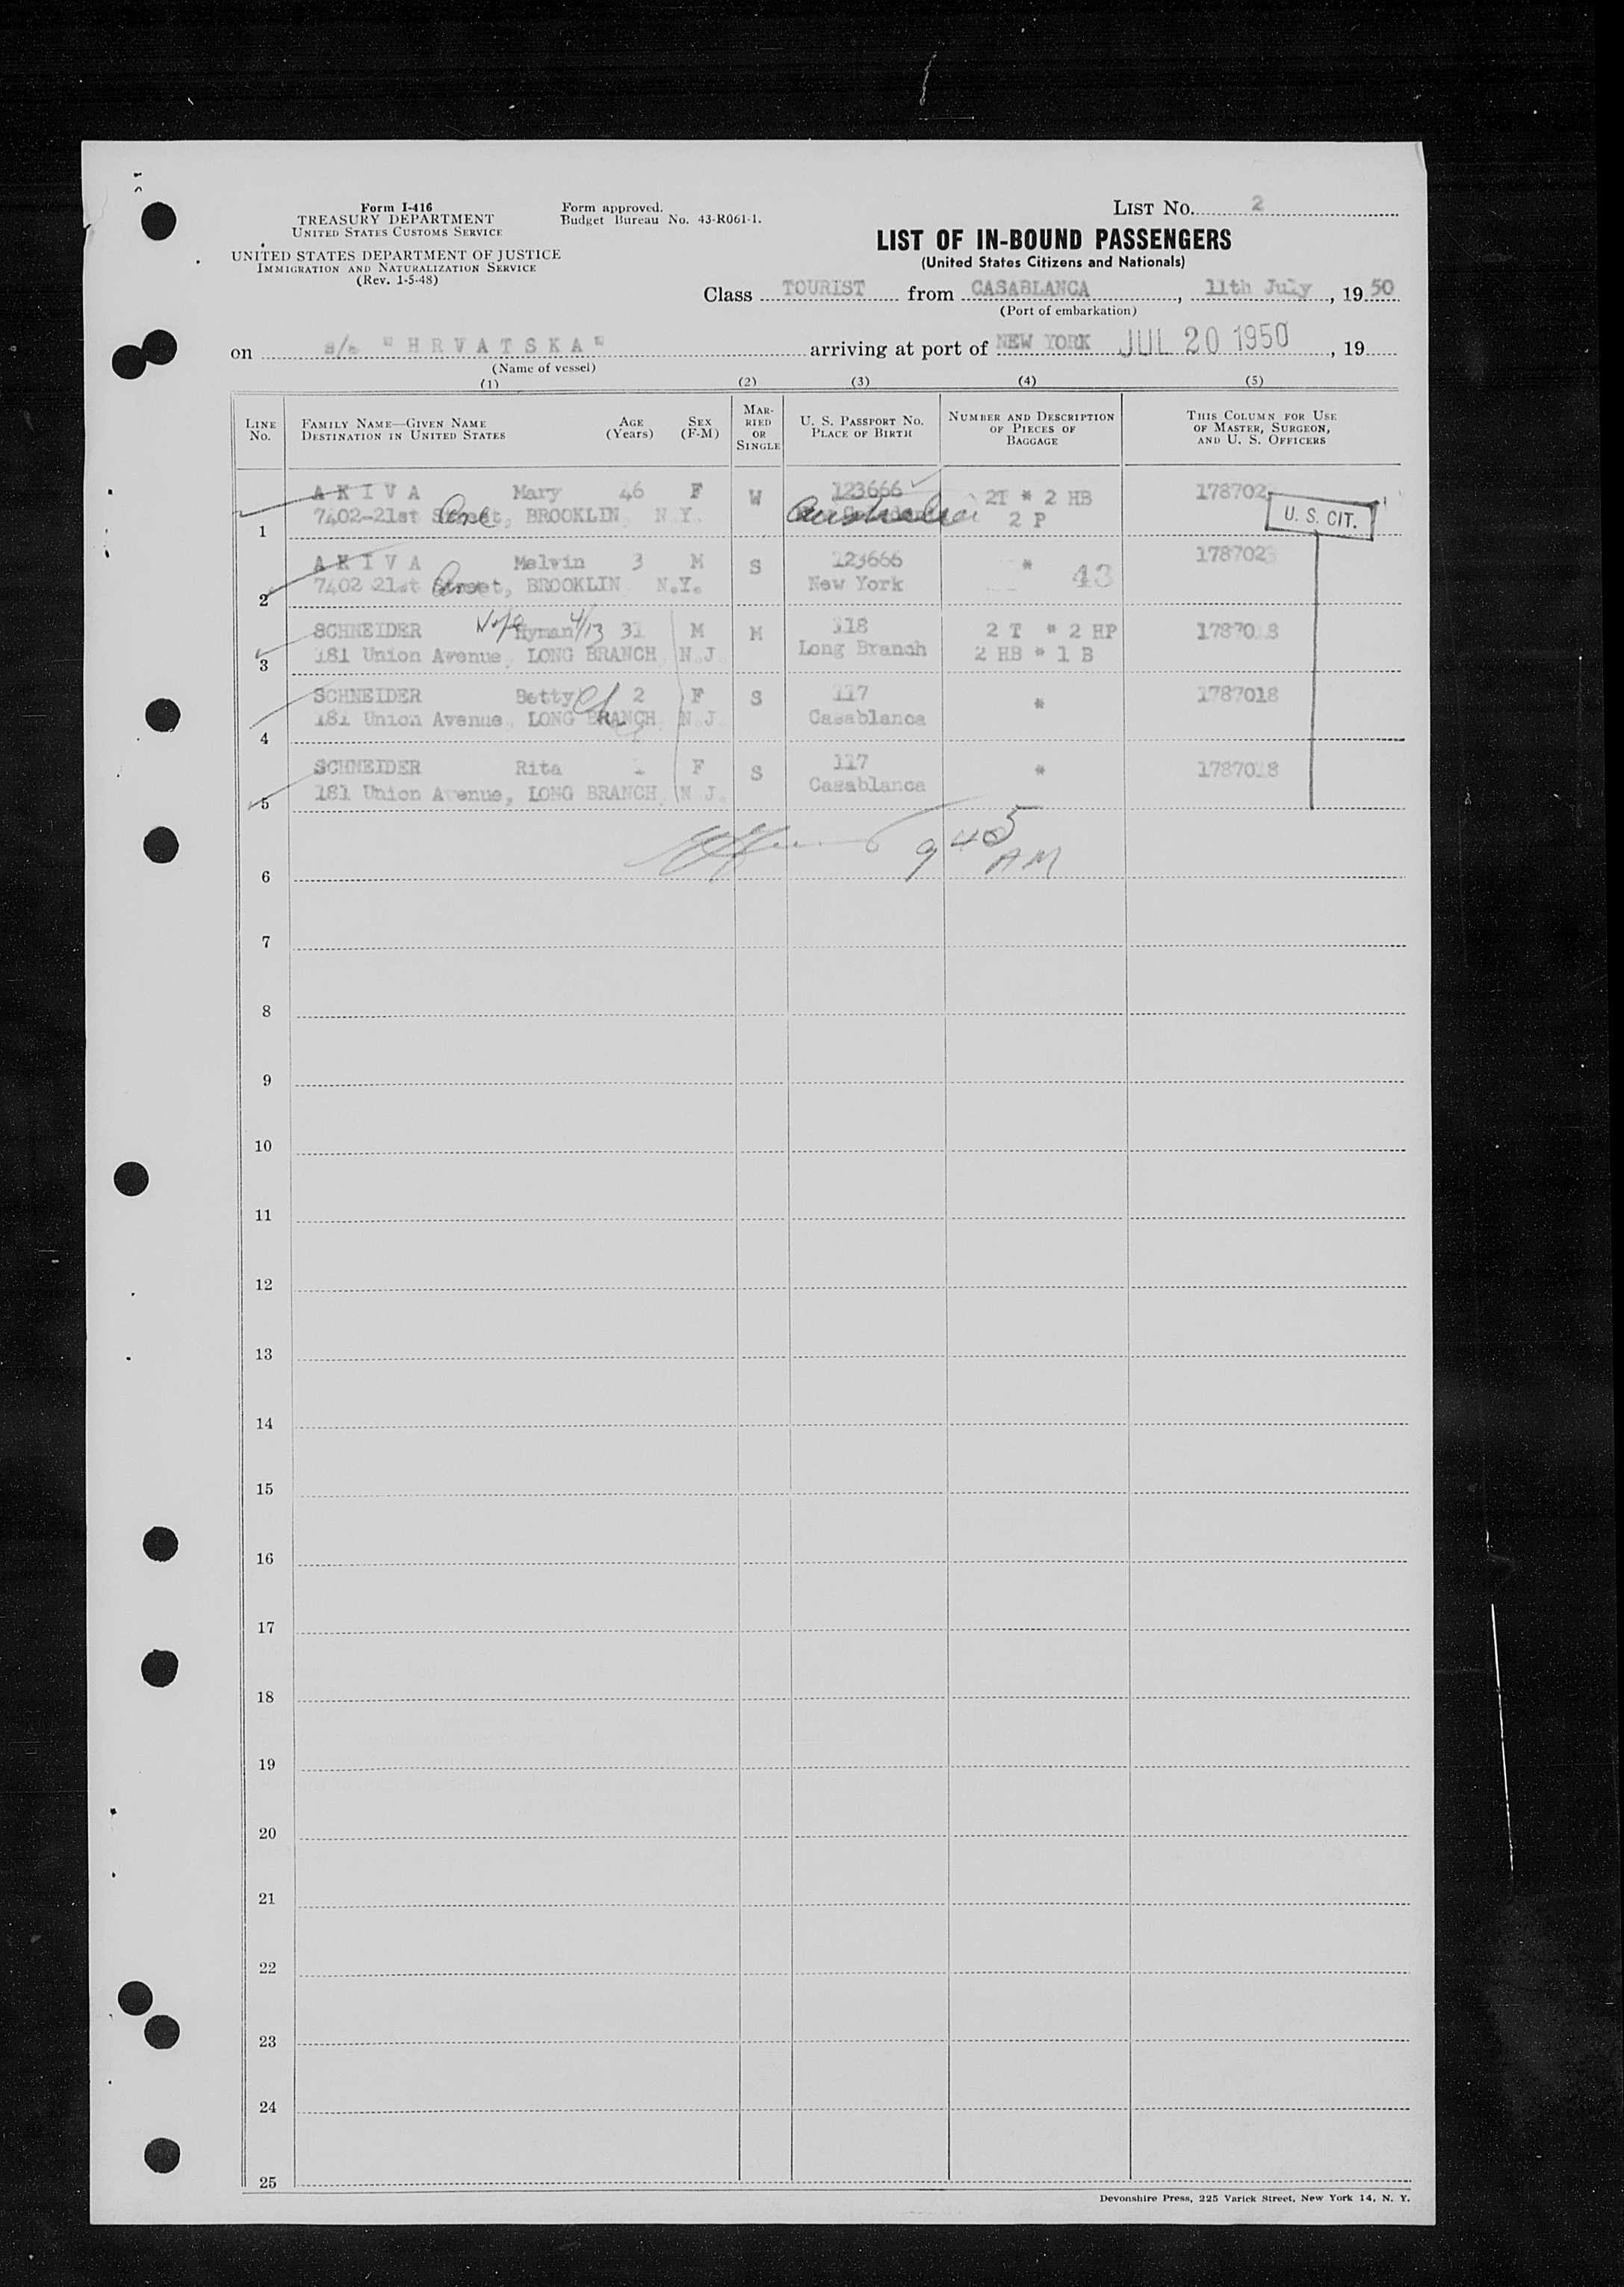 Form I-416
TREASURY DEPARTMENT
UNITED STATES CUSTOMS SERVICE
UNITED STATES DEPARTMENT OF JUSTICE
IMMIGRATION AND NATURALIZATION SERVICE
(Rev. 1-5-48)
Form approved.
Budget Bureau No. 43-R061-1.
LIST No. 2
LIST OF IN-BOUND PASSENGERS
(United States Citizens and Nationals)
Class TOURIST from CASABLANCA, 11th July, 19 50
(Port of embarkation)
on s/s "HRVATSKA" arriving at port of NEW YORK JUL 20 1950, 19
(Name of vessel)
(1) (2) (3) (4) (5)
LINE No.
FAMILY NAME—GIVEN NAME
DESTINATION IN UNITED STATES
AGE (Years)
SEX (F-M)
MARRIED OR SINGLE
U. S. PASSPORT No.
PLACE OF BIRTH
NUMBER AND DESCRIPTION OF PIECES OF BAGGAGE
THIS COLUMN FOR USE OF MASTER, SURGEON, AND U. S. OFFICERS
1 AKIVA Mary 46 F W 123666 2T * 2 HB 1787023
7402-21st Street, BROOKLIN N.Y. Australia 2 P
U. S. CIT.
2 AKIVA Melvin 3 M S 123666 * 43 1787023
7402 21st Street, BROOKLIN N.Y. New York
3 SCHNEIDER Hyman 4/13 31 M M 118 2 T * 2 HP 1787018
181 Union Avenue, LONG BRANCH N.J. Long Branch 2 HB * 1 B
4 SCHNEIDER Betty 2 F S 117 * 1787018
181 Union Avenue, LONG BRANCH N.J. Casablanca
5 SCHNEIDER Rita 1 F S 117 * 1787018
181 Union Avenue, LONG BRANCH N.J. Casablanca
9 40 5 AM
6
7
8
9
10
11
12
13
14
15
16
17
18
19
20
21
22
23
24
25
Devonshire Press, 225 Varick Street, New York 14, N. Y.